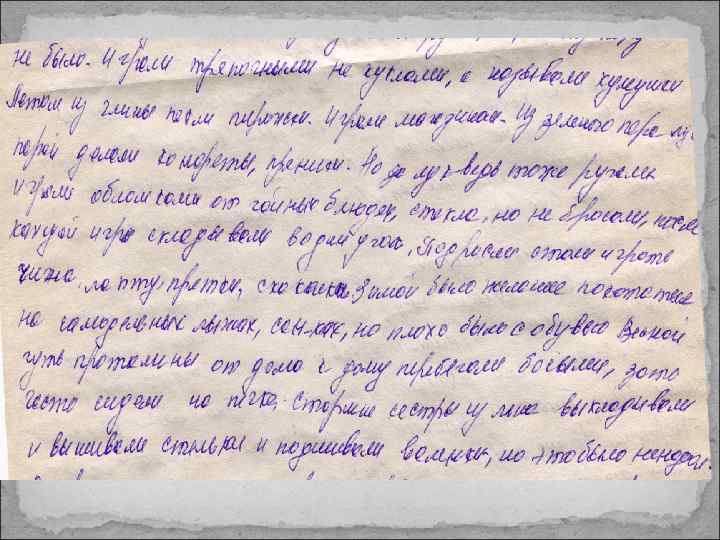 не было. Играли тряпочными не куклами, а называли кукушки
Летом из глины пекли пирожки. Играли магазинами. Из зеленого пера лу-
порой делали конфеты, пряники. Но за лук ведь тоже ругали
играли обломками от чайных блюдец, стекла, но не бросали, после
каждой игры складывали в один угол. Подросли стали играть
чижа, лапту, прятки, скакалки. Зимой было желание покататься
на самодельных лыжах, санках, но плохо было с обувью Весной
чуть проталины от дома к дому перебегали босыми, зато
часто сидели на печке. Старшие сестры из льна выкладывали
и вышивали стельки и подшивали валенки, но это было ненадол.